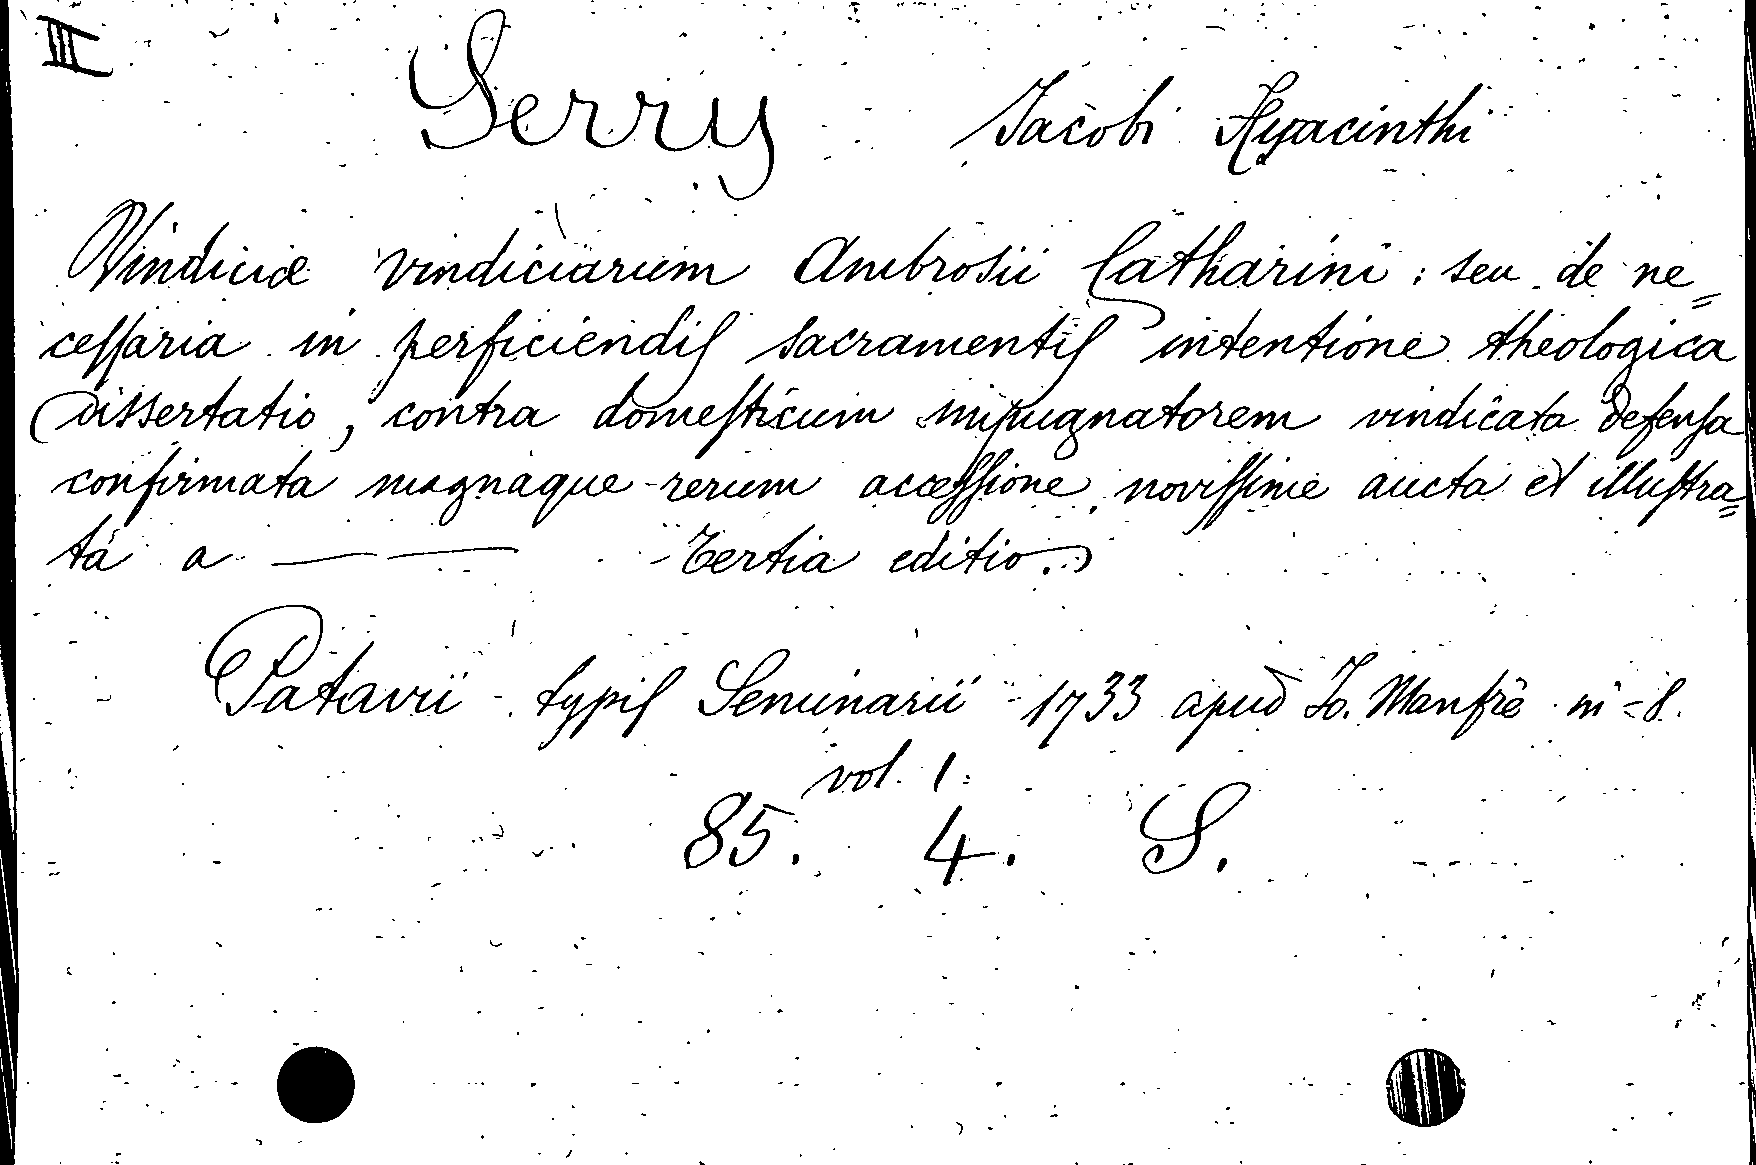 III
Serry Jacobi Hyacinthi
Vindiciæ vindiciarum Ambrosii Catharini : seu de ne=
ceſſaria in perficiendiſ sacramentiſ intentione theologica
Dissertatio, contra domeſticum impugnatorem vindicata defenſa
confirmata magnaque rerum acceſſione, noviſſime aucta et illuſtra=
ta a —— —— Tertia editio.
Patavii typiſ Seminarii 1733 apud Jo. Manfrè in-8.
vol. 1.
85. 4. S.